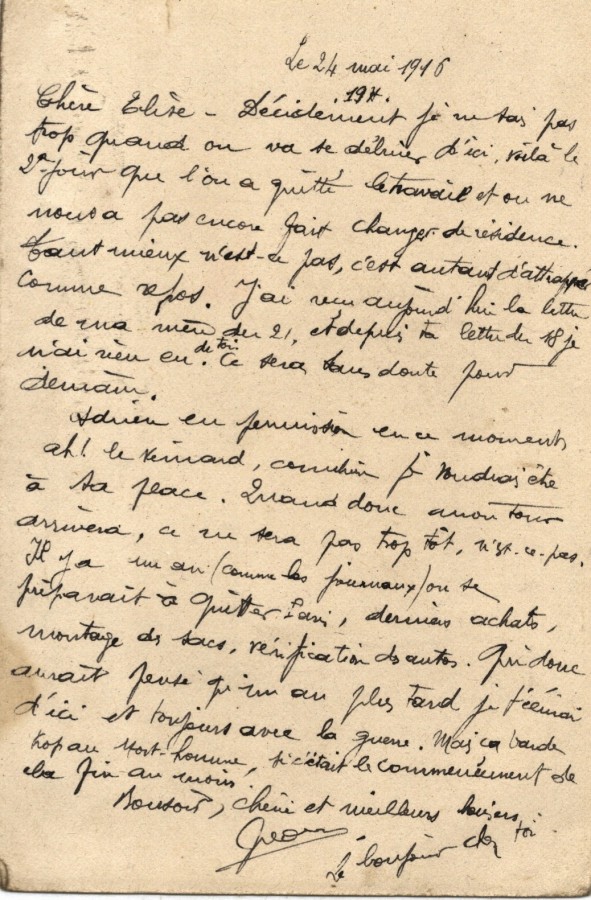 Le 24 mai 1916
19H.
Chère Elise - Décidément je ne sais pas
trop quand on va se débiner d'ici, voilà le
2e jour que l'on a quitté le travail et on ne
nous a pas encore fait changer de résidence.
Tant mieux n'est-ce pas, c'est autant d'attrapé
comme repos. J'ai reçu aujourd'hui la lettre
de ma mère du 21, et depuis ta lettre du 18 je
n'ai rien eu de toi. Ce sera sans doute pour
demain.
Adrien en permission en ce moment
ah! le veinard, combien je voudrais être
à sa place. Quand donc mon tour
arrivera, ce ne sera pas trop tôt, n'est-ce-pas.
Il y a un an (comme les journaux) on se
préparait à quitter Paris, derniers achats,
montage des sacs, vérification des autos. Qui donc
aurait pensé qu'un an plus tard je t'écrirai
d'ici et toujours avec la guerre. Mais ça barde
trop au Mort-homme, si c'était le commencement de
la fin au moins
Bonsoir, chérie et meilleurs baisers
Le bonjour chez toi